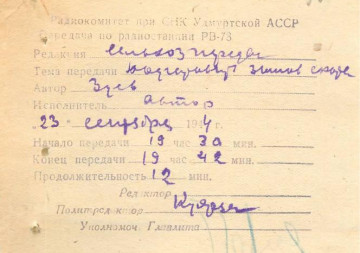 Радиокомитет при СНК Удмуртской АССР
Передача по радиостанции РВ-78
Редакция сельхозпередач
Тема передачи
Автор Зуев
Исполнитель автор
23 сентября 194 4
Начало передачи 19 час 30 мин.
Конец передачи 19 час 42 мин.
Продолжительность 12 мин.
Редактор
Политредактор
Уполномоч. Главлита